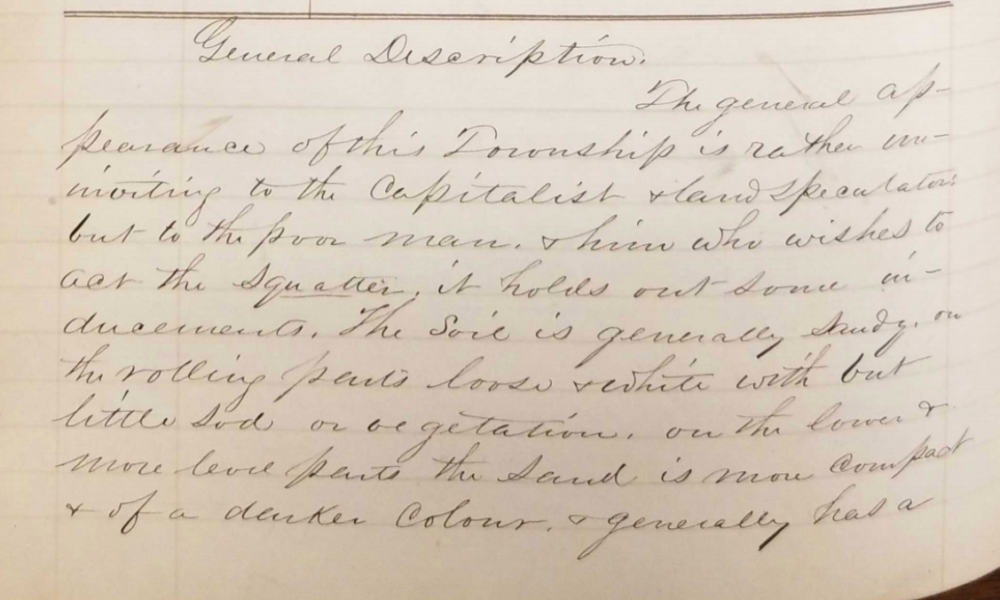 General Description.
The general ap-
pearance of this Township is rather un-
inviting to the Capitalist & land speculators
but to the poor man. & him who wishes to
act the squatter. it holds out some in-
ducements. The Soil is generally sandy. on
the rolling parts loose & white with but
little sod or vegetation. on the lower &
more level parts the sand is more compact
& of a darker Colour. & generally has a